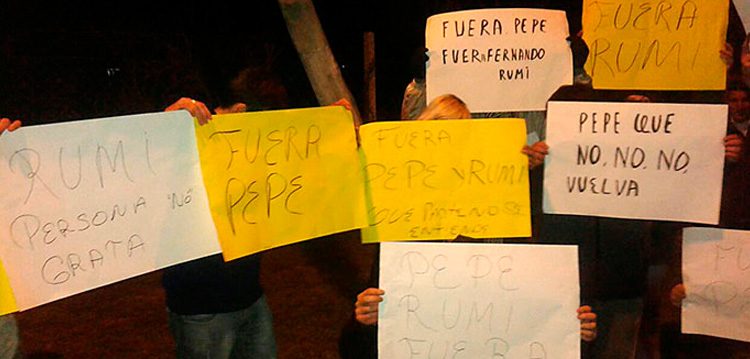 FUERA PEPE
FUERA FERNANDO
RUMI
FUERA
RUMI
RUMI
PERSONA NO
GRATA
FUERA
PEPE
FUERA
PEPE Y RUMI
QUE
SE
ENTIENDE
PEPE QUE
NO, NO, NO,
VUELVA
PEPE
RUMI
FUERA